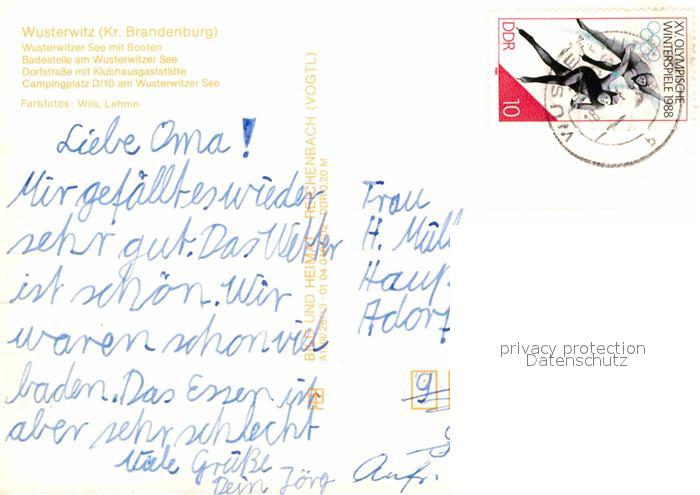 Wusterwitz (Kr. Brandenburg)
Wusterwitzer See mit Booten
Badestelle am Wusterwitzer See
Dorfstraße mit Klubhausgaststätte
Campingplatz D/10 am Wusterwitzer See
Farbfotos: Wils, Lehnin
Liebe Oma!
Mir gefällt es wieder
sehr gut. Das Wetter
ist schön. Wir
waren schon viel
baden. Das Essen ist
aber sehr schlecht
Viele Grüße
Dein Jörg
BILD UND HEIMAT REICHENBACH (VOGTL)
DDR
10
XV. OLYMPISCHE
WINTERSPIELE 1988
Frau
H. Müll
Haup
Adorf
9
privacy protection
Datenschutz